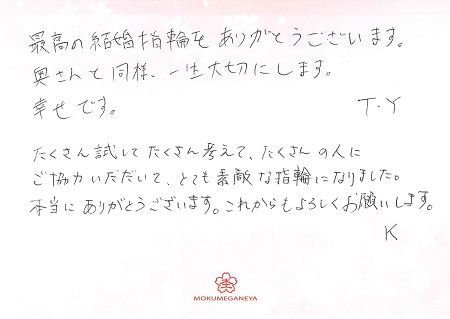 最高の結婚指輪をありがとうございます。
奥さんと同様、一生大切にします。
幸せです。 T.Y
たくさん試してたくさん考えて、たくさんの人に
ご協力いただいて、とても素敵な指輪になりました。
本当にありがとうございます。これからもよろしくお願いします。
K
MOKUMEGANEYA